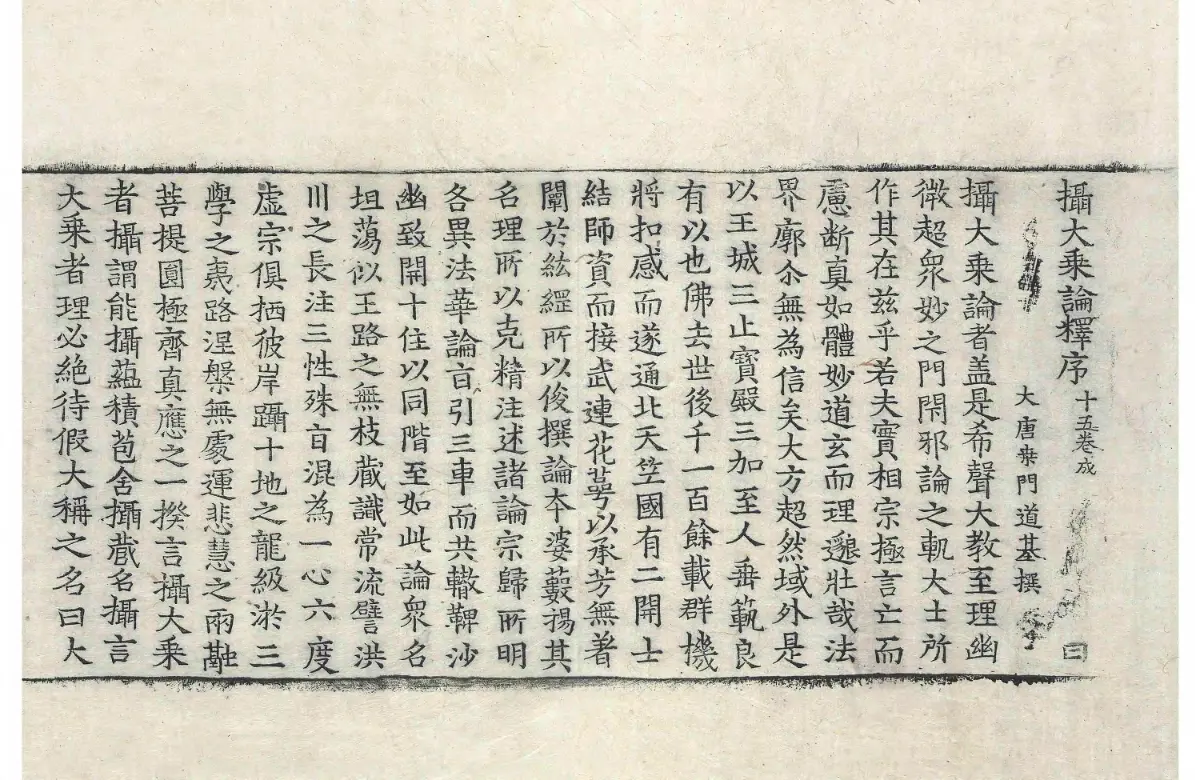 攝大乘論釋序 十五卷成
大唐桒門道基撰
攝大乘論者盖是希聲大教至理幽
微超衆妙之門閇邪論之軌大士所
作其在兹乎若夫實相宗極言亡而
慮断真如體妙道玄而理邈壯哉法
界廓尒無為信矣大方超然域外是
以王城三止寶殿三加至人垂範良
有以也佛去世後千一百餘載群機
將扣感而遂通北天笁國有二開士
結師資而接武連花萼以承芳無著
闡於紘綱所以俊撰論夲婆藪揚其
名理所以克精注述諸論宗歸所明
各異法華論㫖引三車而共轍鞞沙
幽致開十住以同階至如此論衆名
坦蕩似王路之無枝蔵識常流譬洪
川之長注三性殊㫖混為一心六度
虛宗俱栖彼岸躡十地之龍級淤三
學之夷路涅槃無處運悲慧之兩融
菩提圎極齊真應之一揆言攝大乘
者攝謂能攝蘊積苞舍攝蔵名攝言
大乘者理必絶待假大稱之名曰大